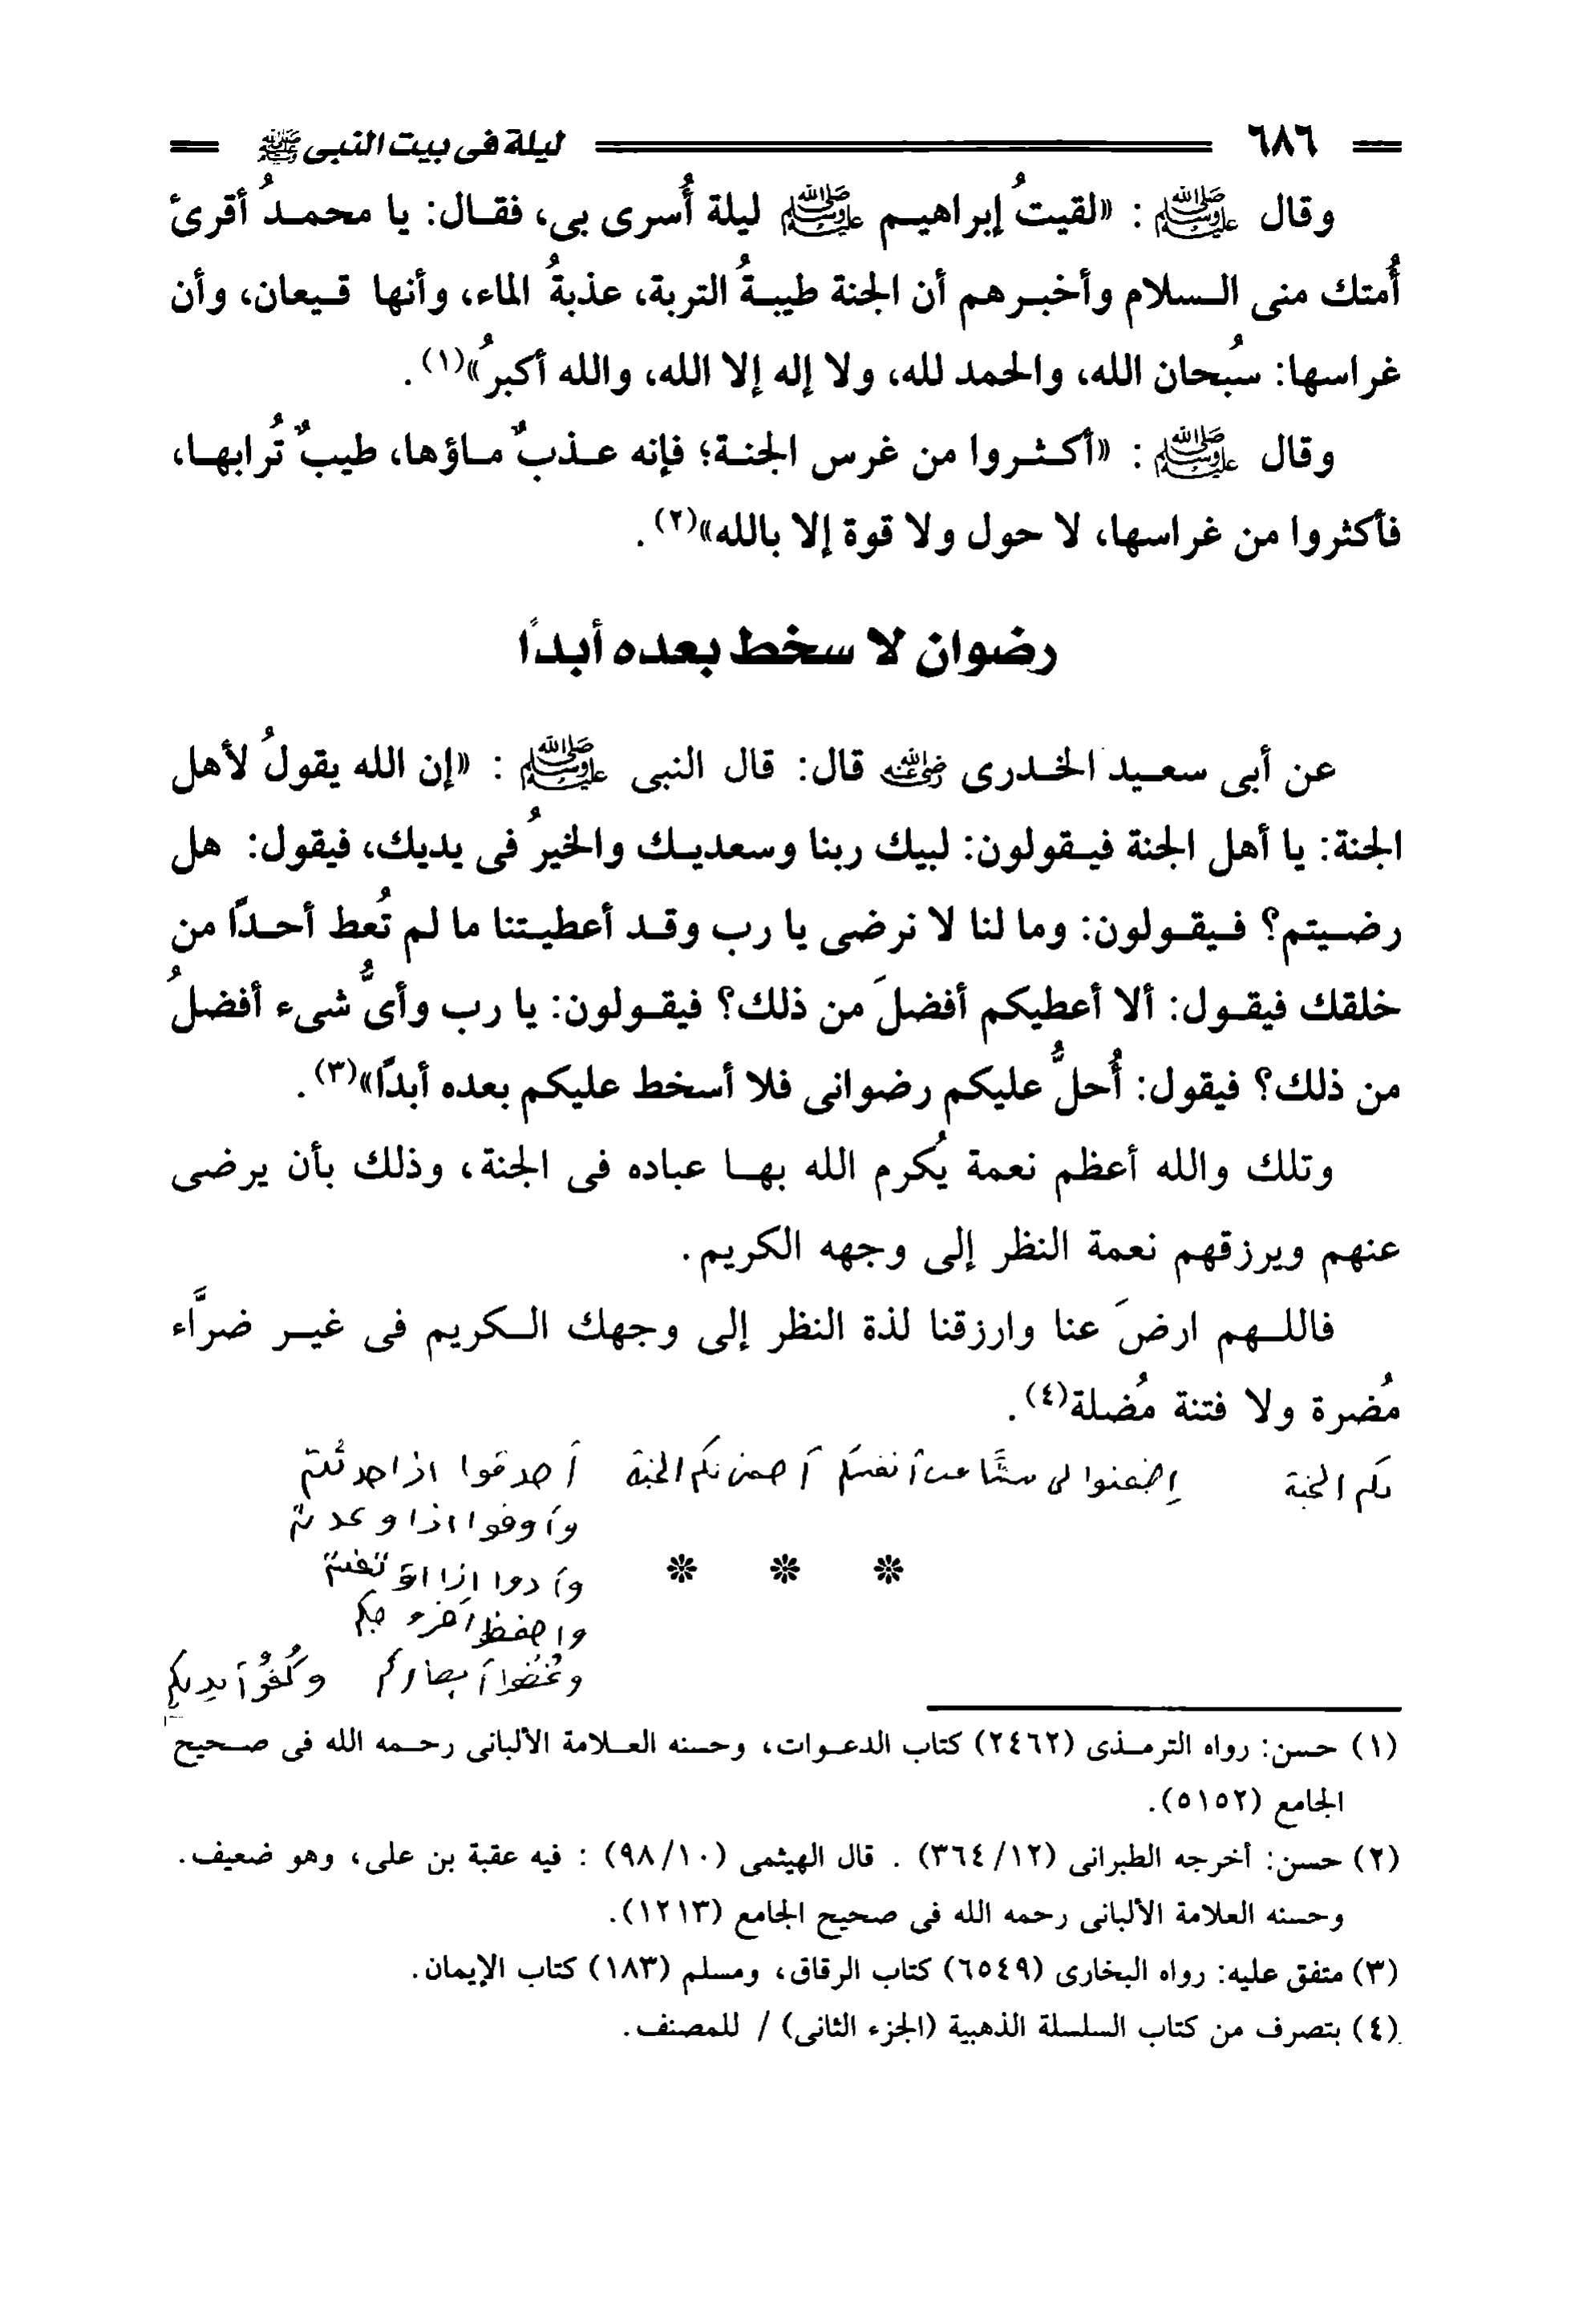 ٦٨٦ ليلة فى بيت النبى ﷺ
وقال ﷺ : «لقيتُ إبراهيم ﷺ ليلة أُسرى بى، فقال: يا محمدُ أقرئ
أُمتك منى السلام وأخبرهم أن الجنة طيبةُ التربة، عذبةُ الماء، وأنها قيعان، وأن
غراسها: سُبحان الله، والحمد لله، ولا إله إلا الله، والله أكبرُ»(١).
وقال ﷺ : «أكثروا من غرس الجنة؛ فإنه عذبٌ ماؤها، طيبٌ تُرابها،
فأكثروا من غراسها، لا حول ولا قوة إلا بالله»(٢).
رضوان لا سخط بعده أبدًا
عن أبى سعيد الخدرى رضي الله عنه قال: قال النبى ﷺ : «إن الله يقولُ لأهل
الجنة: يا أهل الجنة فيقولون: لبيك ربنا وسعديك والخيرُ فى يديك، فيقول: هل
رضيتم؟ فيقولون: وما لنا لا نرضى يا رب وقد أعطيتنا ما لم تُعط أحدًا من
خلقك فيقول: ألا أعطيكم أفضلَ من ذلك؟ فيقولون: يا رب وأىُّ شىء أفضلُ
من ذلك؟ فيقول: أُحلُّ عليكم رضوانى فلا أسخط عليكم بعده أبدًا»(٣).
وتلك والله أعظم نعمة يُكرم الله بها عباده فى الجنة، وذلك بأن يرضى
عنهم ويرزقهم نعمة النظر إلى وجهه الكريم.
فاللهم ارضَ عنا وارزقنا لذة النظر إلى وجهك الكريم فى غير ضرَّاء
مُضرة ولا فتنة مُضلة(٤).
لكم الجنة اضمنوا لى ستًّا من أنفسكم أضمن لكم الجنة أصدقوا اذا حدثتم
وأوفوا اذا وعدتم
وأدوا إذا اؤتمنتم
واحفظوا فروجكم
وغُضوا أبصاركم وكُفُّوا أيديكم
* * *
(١) حسن: رواه الترمذى (٢٤٦٢) كتاب الدعوات، وحسنه العلامة الألبانى رحمه الله فى صحيح
الجامع (٥١٥٢).
(٢) حسن: أخرجه الطبرانى (٣٦٤/١٢) . قال الهيثمى (٩٨/١٠) : فيه عقبة بن على، وهو ضعيف.
وحسنه العلامة الألبانى رحمه الله فى صحيح الجامع (١٢١٣).
(٣) متفق عليه: رواه البخارى (٦٥٤٩) كتاب الرقاق، ومسلم (١٨٣) كتاب الإيمان.
(٤) بتصرف من كتاب السلسلة الذهبية (الجزء الثانى) / للمصنف.